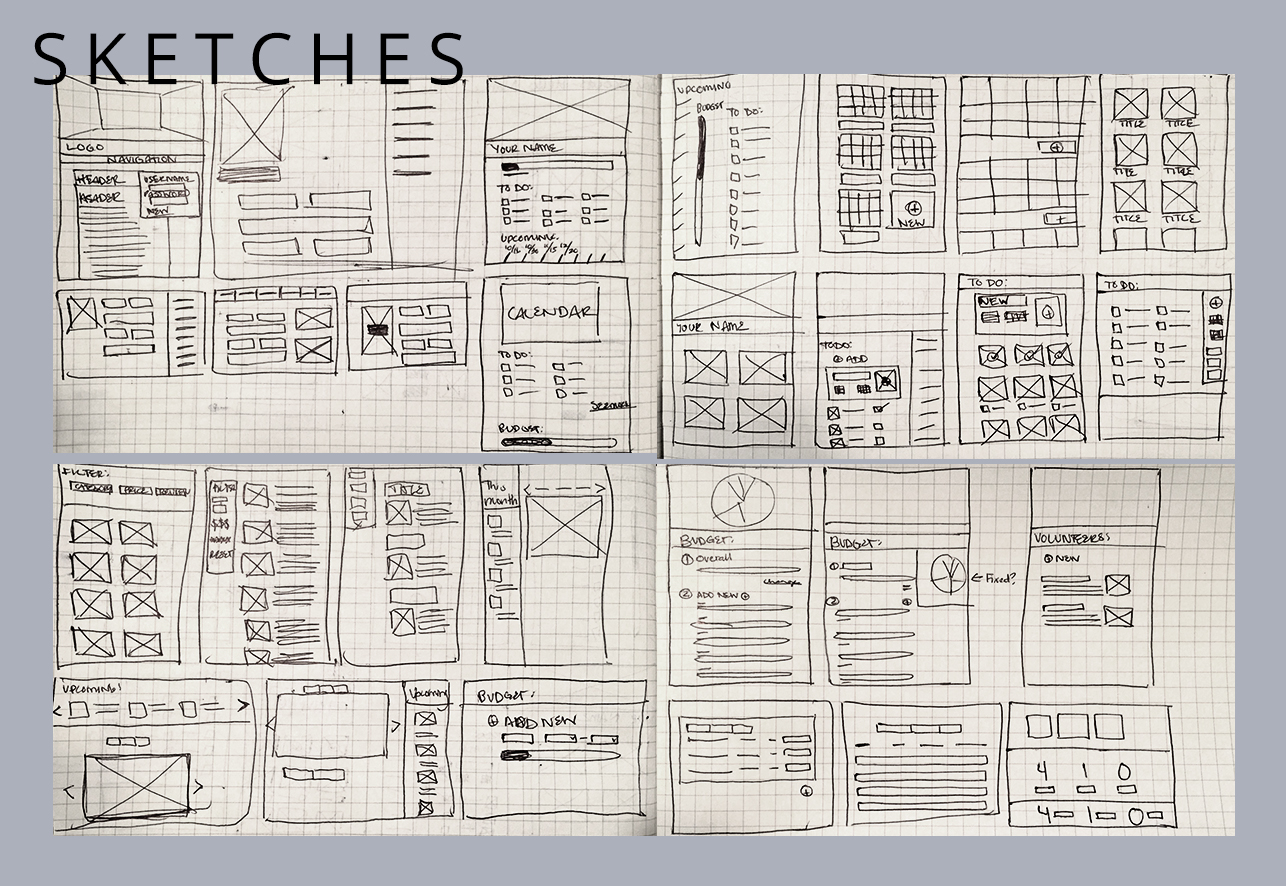 SKETCHES
LOGO
NAVIGATION
HEADER
HEADER
USERNAME
PASSWORD
NEW
YOUR NAME
TO DO:
UPCOMING:
CALENDAR
TO DO:
See more
BUDGET:
UPCOMING
BUDGET
TO DO:
+
NEW
+
+
TITLE TITLE
TITLE TITLE
TITLE TITLE
YOUR NAME
TO DO:
+ ADD
TO DO:
NEW
+
TO DO:
+
FILTER:
CATEGORY PRICE REVIEW
FILTER
$$$
RESET
TITLE
This
month
UPCOMING:
< >
< >
< >
Upcoming
BUDGET:
+ ADD NEW
BUDGET:
1 Overall
change
2 ADD NEW +
BUDGET:
1
2
+
← Fixed?
VOLUNTEERS:
+ NEW
+
4 1 0
4 1 0